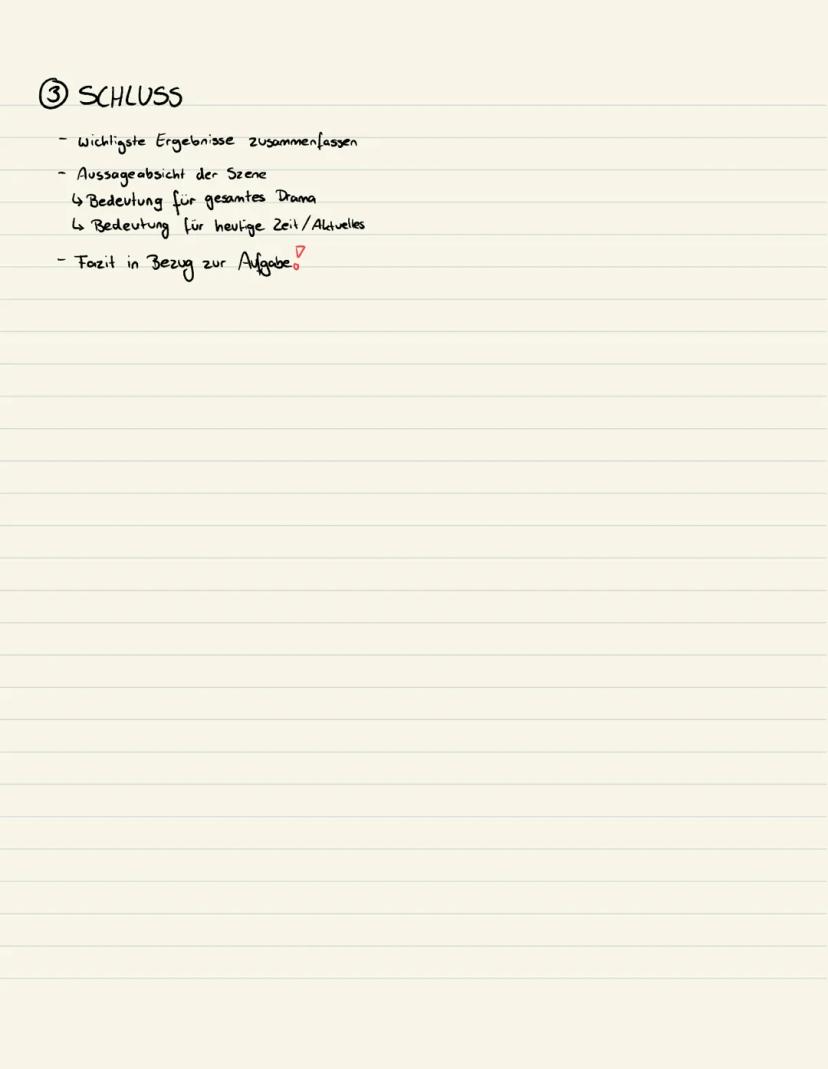 ③ SCHLUSS
- Wichtigste Ergebnisse zusammenfassen
- Aussageabsicht der Szene
↳ Bedeutung für gesamtes Drama
↳ Bedeutung für heutige Zeit/Aktuelles
- Fazit in Bezug zur Aufgabe!